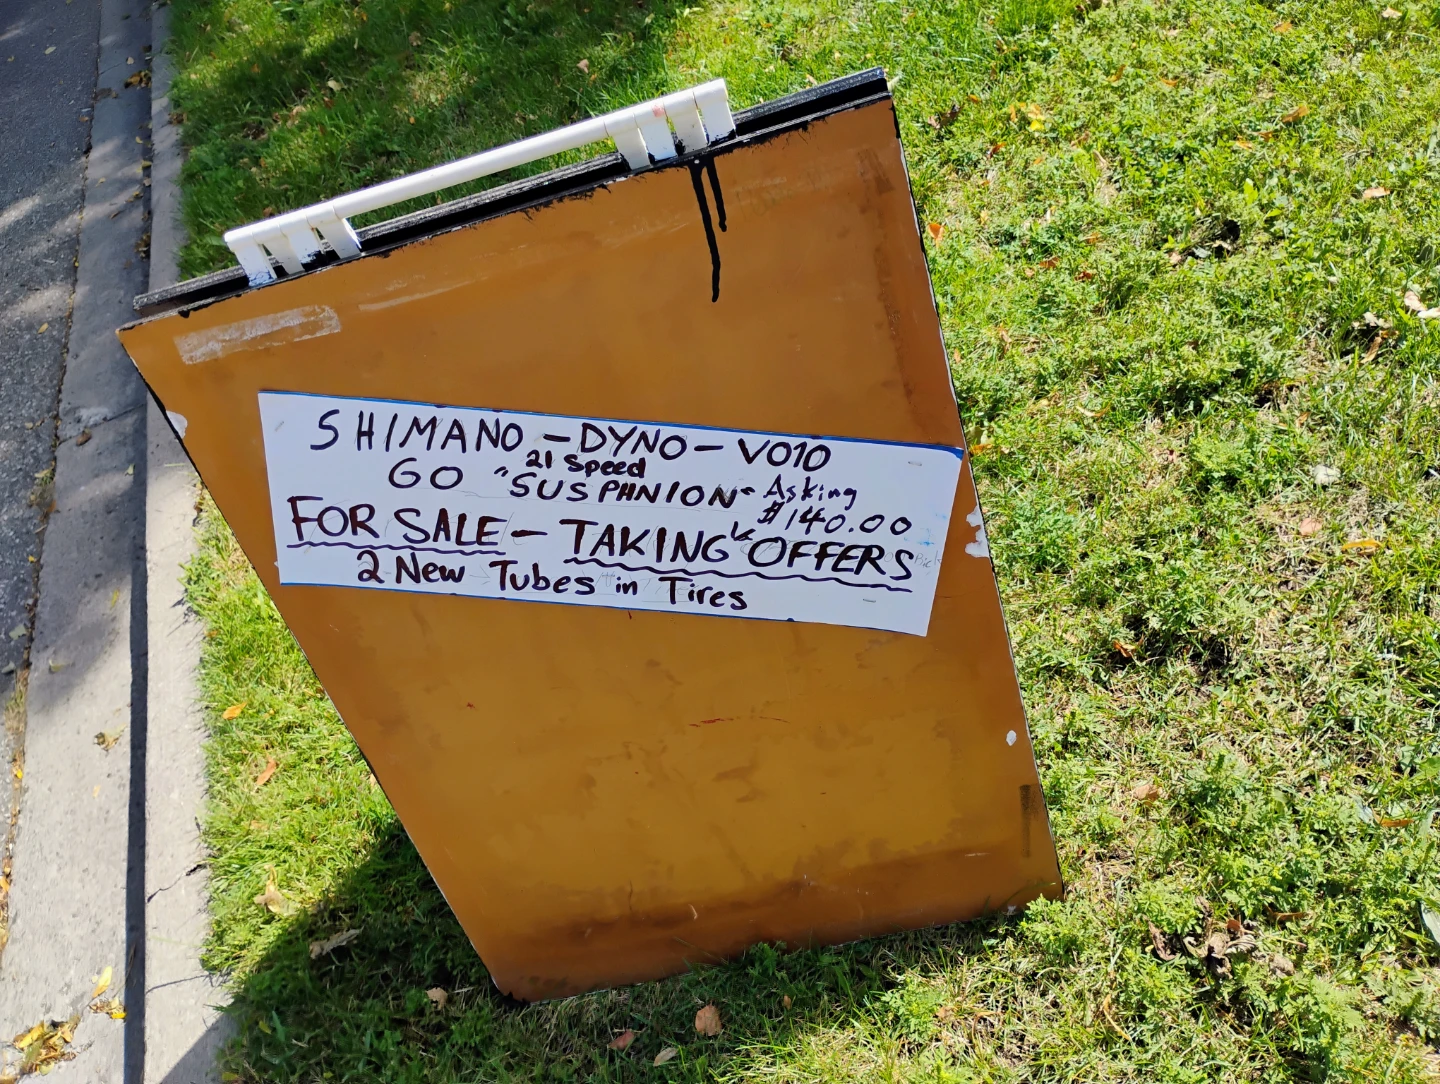 SHIMANO - DYNO - VO10
21 Speed
GO "SUSPANION" Asking
$140.00
FOR SALE - TAKING OFFERS
2 New Tubes in Tires